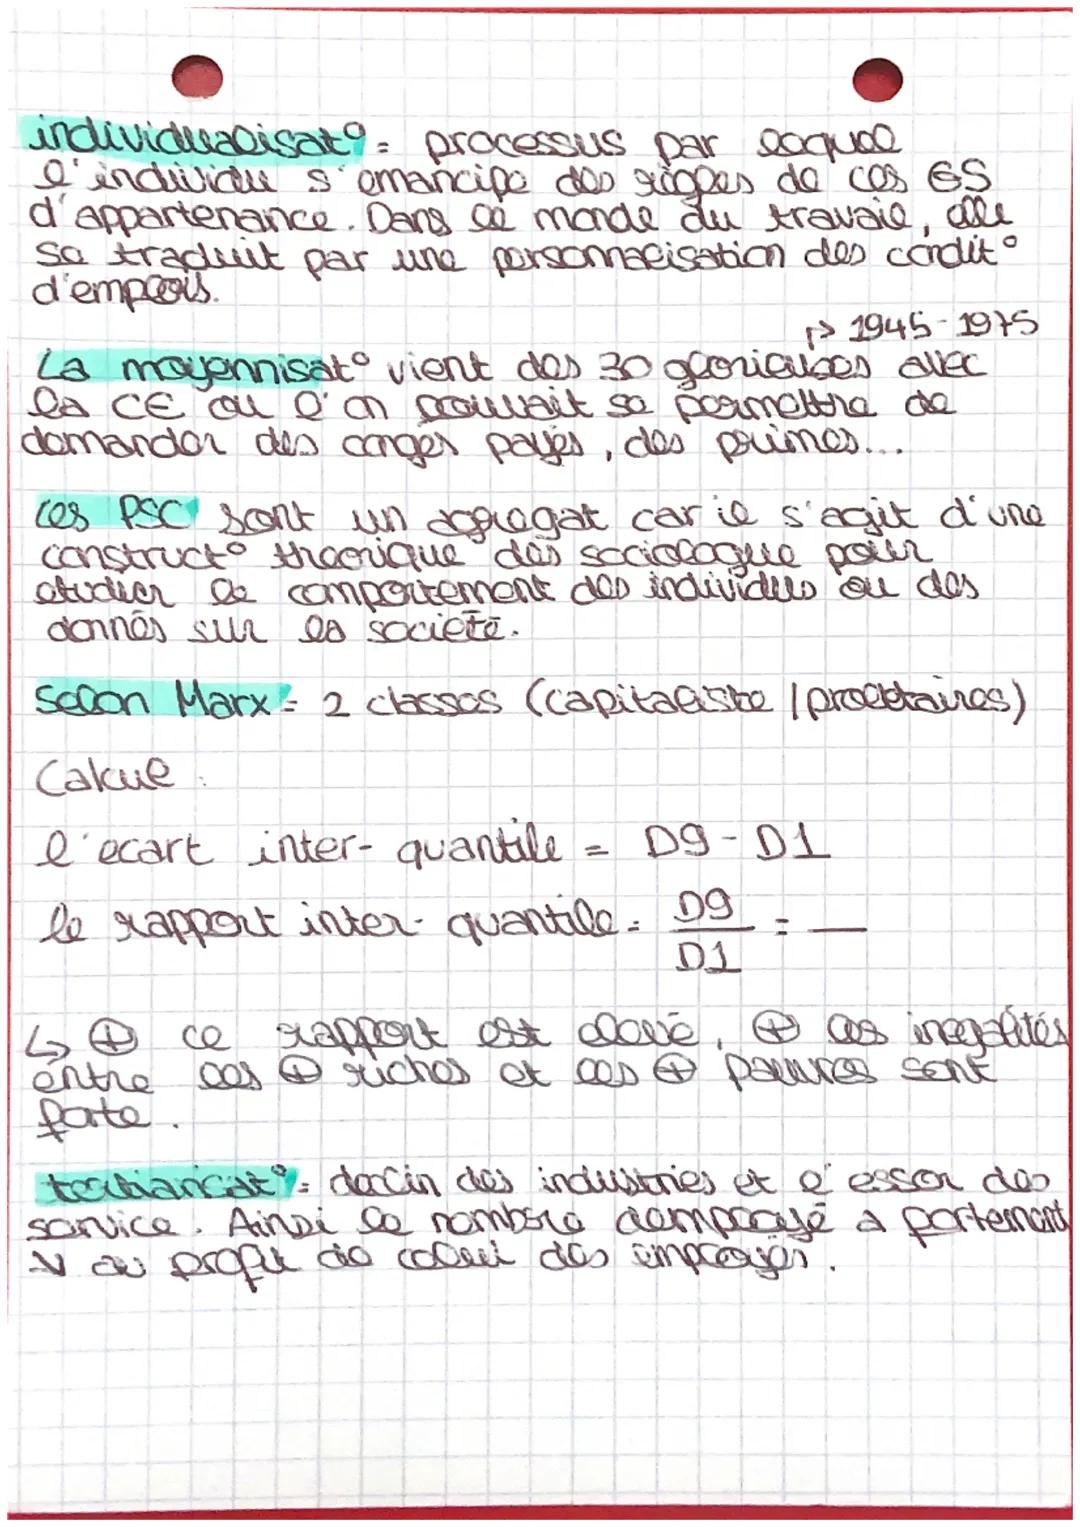 individualisat° = processus par lequel
l'individu s'emancipe des règles de ces GS
d'appartenance. Dans le monde du travail, elle
se traduit par une personnalisation des condit°
d'emplois.
↱ 1945-1975
La moyennisat° vient des 30 glorieuses avec
la CE ou l'on pouvait se permettre de
demander des congés payés, des primes...
Les PSC sont un agrégat car il s'agit d'une
construct° théorique des sociologue pour
etudier le comportement des individus ou des
donnés sur la société.
Selon Marx = 2 classes (capitaliste / prolétaires)
Calcul :
l'ecart inter-quantile = D9 - D1
le rapport inter-quantile = D9/D1 = —
↳ ⊕ ce rapport est élevé, ⊕ les inegalités
entre les ⊕ riches et les ⊕ pauvres sont
forte.
tertiarisat° = déclin des industries et l'essor des
service. Ainsi le nombre a fortement
↘ au profit de celui des employés.